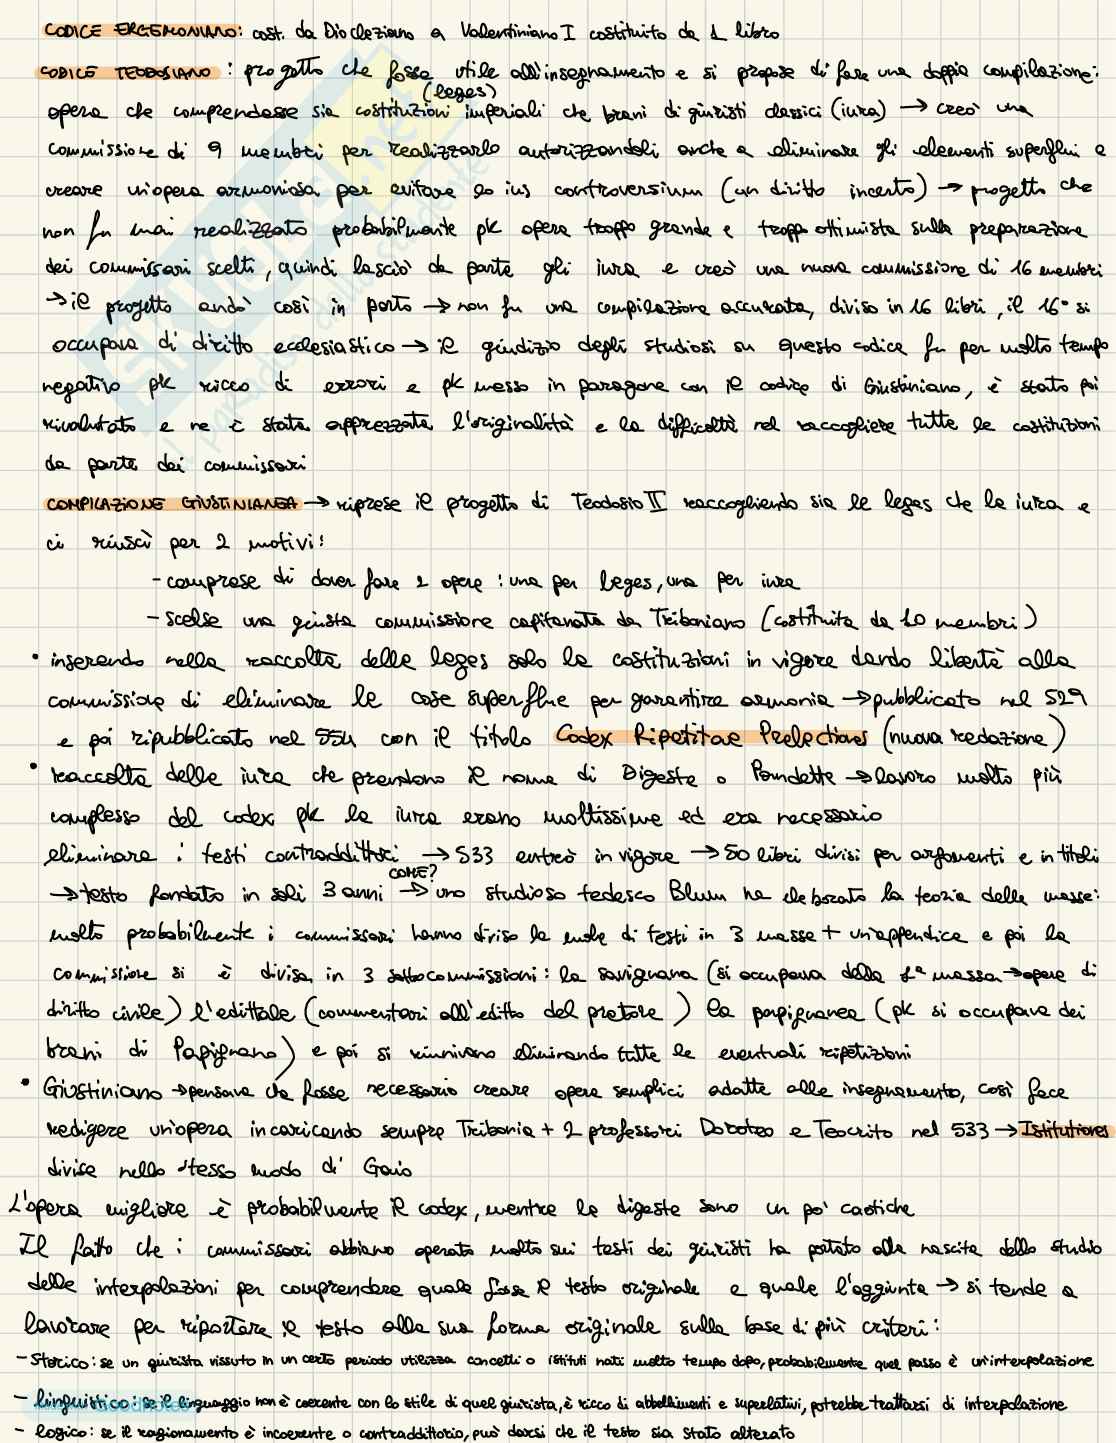 CODICE ERGEMONIANO: cost. da Diocleziano a Valentiniano I costituito da 1 libro
CODICE TEODOSIANO : progetto che fosse utile all'insegnamento e si propose di fare una doppia compilazione:
(leges)
opera che comprendesse sia costituzioni imperiali che brani di giuristi classici (iura) → creò una
commissione di 9 membri per realizzarlo autorizzandoli anche a eliminare gli elementi superflui e
creare un'opera armoniosa per evitare lo ius controversium (un diritto incerto) → progetto che
non fu mai realizzato probabilmente pk opera troppo grande e troppo ottimista sulla preparazione
dei commissari scelti, quindi lasciò da parte gli iura e creò una nuova commissione di 16 membri
→ il progetto andò così in porto → non fu una compilazione accurata, diviso in 16 libri, il 16° si
occupava di diritto ecclesiastico → il giudizio degli studiosi su questo codice fu per molto tempo
negativo pk ricco di errori e pk messo in paragone con il codice di Giustiniano, è stato poi
rivalutato e ne è stata apprezzata l'originalità e la difficoltà nel raccogliere tutte le costituzioni
da parte dei commissari
COMPILAZIONE GIUSTINIANEA → riprese il progetto di Teodosio II raccogliendo sia le leges che la iura e
ci riuscì per 2 motivi:
- comprese di dover fare 2 opere : una per leges, una per iura
- scelse una giusta commissione capitanata da Triboniano (costituita da 10 membri)
• inserendo nella raccolta delle leges solo le costituzioni in vigore dando libertà alla
commissione di eliminare le cose superflue per garantire armonia → pubblicato nel 529
e poi ripubblicato nel 554 con il titolo Codex Ripetitae Prelectiones (nuova redazione)
• raccolta delle iura che prendono il nome di Digesta o Pandette → lavoro molto più
complesso del codex pk la iura erano moltissime ed era necessario
eliminare i testi contraddittori → 533 entrò in vigore → 50 libri divisi per argomenti e in titoli
COME?
→ testo fondato in soli 3 anni → uno studioso tedesco Blum ha elaborato la teoria delle masse:
molto probabilmente i commissari hanno diviso la mole di testi in 3 masse + un'appendice e poi la
commissione si è divisa in 3 sottocommissioni: la savignana (si occupava della 1ª massa → opere di
diritto civile) l'edittale (commentari all'editto del pretore) la papignanea (pk si occupava dei
brani di Papignano) e poi si riunivano eliminando tutte le eventuali ripetizioni
• Giustiniano → pensava che fosse necessario creare opere semplici adatte alle insegnamento, così fece
redigere un'opera incaricando sempre Tribonia + 2 professori Doroteo e Teocrito nel 533 → Istitutiones
divise nello stesso modo di Gaio
L'opera migliore è probabilmente il codex, mentre le digeste sono un po' caotiche
Il fatto che i commissari abbiano operato molto sui testi dei giuristi ha portato alla nascita dello studio
delle interpolazioni per comprendere quale fosse il testo originale e quale l'aggiunta → si tende a
lavorare per riportare il testo alla sua forma originale sulla base di più criteri:
- Storico: se un giurista vissuto in un certo periodo utilizza concetti o istituti nati molto tempo dopo, probabilmente quel passo è un'interpolazione
- linguistico: se il linguaggio non è coerente con lo stile di quel giurista, è ricco di abbellimenti e superlativi, potrebbe trattarsi di interpolazione
- logico: se il ragionamento è incoerente o contraddittorio, può darsi che il testo sia stato alterato